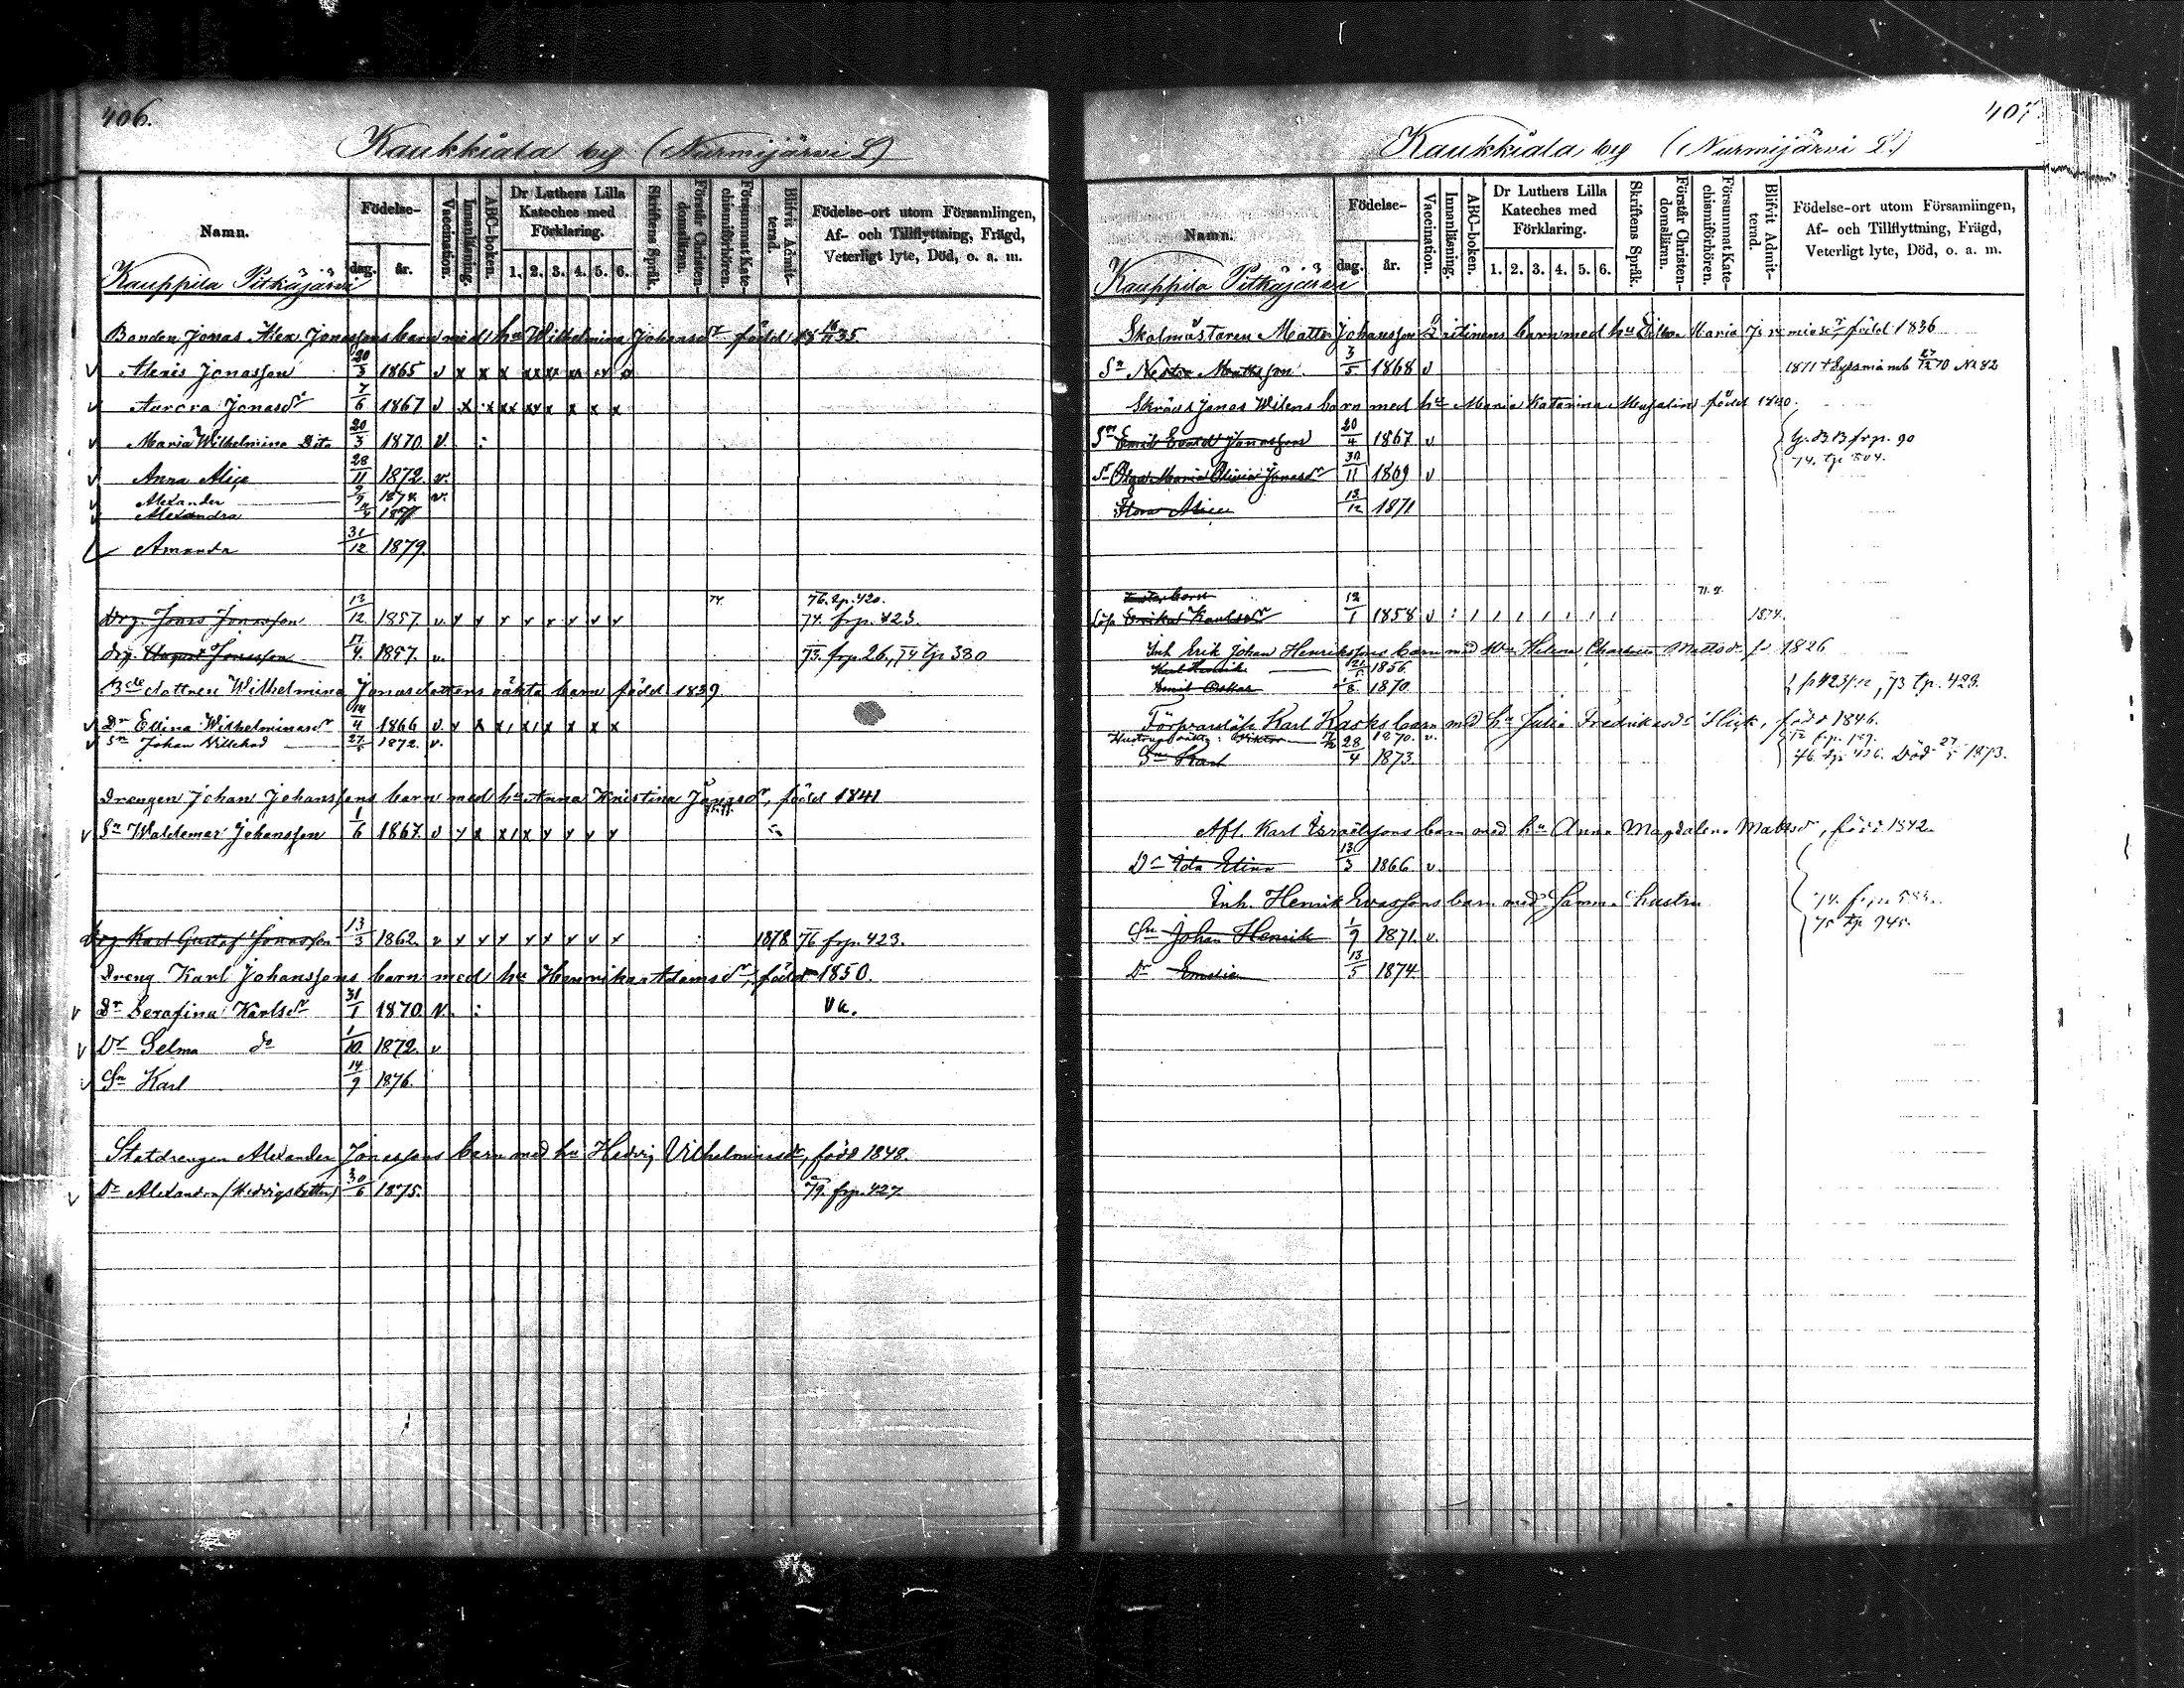 406.
Kaukkiala by (Nurmijärvi L)
Namn.
Födelse-
dag.
år.
Vaccination.
Innanläsning.
ABC-boken.
Dr Luthers Lilla Kateches med Förklaring.
1. 2. 3. 4. 5. 6.
Skriftens Språk.
Förstår Christendomsläran.
Försummat Katechismiförhören.
Blifvit Admitterad.
Födelse-ort utom Församlingen, Af- och Tillflyttning, Frägd, Veterligt lyte, Död, o. a. m.
Kauppila Pitkäjärvi
Bonden Jonas Alex Jonassons barn med hu Wilhelmina Johansdr född 35.
v Alexis Jonasson 20/3 1865 v x x x xx xx xx
v Aurora Jonasdr 7/6 1867 v x x xx xx x x x x
v Maria Wilhelmina Dito 20/3 1870 v. :
v Anna Alice 28/11 1872 v.
v Alexander 1874 v.
v Alexandra 1877
Amanda 31/12 1879.
74. 76. tp. 420.
Drg. Jonas Jonasson 13/12 1857 v. x x x x x x x x 74. frp. 423.
Drg. August Jonasson 17/4. 1857. v. 73. frp. 26., 74 tp 380
Bde dottren Wilhelmina Jonasdotters oäkta barn född 1839
v Dr Elina Wilhelminasdr 14/4 1866 v. x x x x x x x x
v Sn Johan Villehad 1872. v.
Drengen Johan Johanssons barn med hu Anna Kristina Jonasdr, född 1841
v Sn Waldemar Johansson 1/6 1867. v x x x x x x x x
Drg Karl Gustaf Jonasson 13/3 1862. v x x x x x x x x : 1878 76 frp. 423.
Dreng Karl Johanssons barn med hu Henrika Adamsdr, född 1850.
v Dr Serafina Karlsdr 31/1 1870. v. : va.
v Dr Selma do 1/10. 1872. v
v Sn Karl 14/9 1876.
Statdrengen Alexander Jonassons barn med hu Hedvig Vilhelminasdr, född 1848.
v Dr Alexandra (Hedvigsdotter) 30/6 1875. 79. frp. 427.
407
Kaukkiala by (Nurmijärvi L.)
Namn.
Födelse-
dag.
år.
Vaccination.
Innanläsning.
ABC-boken.
Dr Luthers Lilla Kateches med Förklaring.
1. 2. 3. 4. 5. 6.
Skriftens Språk.
Förstår Christendomsläran.
Försummat Katechismiförhören.
Blifvit Admitterad.
Födelse-ort utom Församlingen, Af- och Tillflyttning, Frägd, Veterligt lyte, Död, o. a. m.
Kauppila Pitkäjärvi
Skolmästaren Matts Johansson barn med hu Maria född 1836
Sn Nestor Mattsson. 3/5 1868 v 1871 + 70 No 82
Skrädd Jonas Wilens barn med hu Maria Katarina född 1820.
Sn Emil Evald Jonasson 20/4 1867 v frp. 90
Dr Olga Maria Olivia Jonasdr 30/11 1869 v 74. tp 804.
Flora Alice 13/12 1871
Lösp Erika Karlsdr 12/1 1858 v : 1874.
Inh Erik Johan Henrikssons barn med hu Helena Mattsdr fö 1826
Karl Henrik 1856
Emil Oskar 1870 73 tp. 428.
Karl Kasks barn med hu Julia Fredrikasdr född 1846.
Viktor 1870. v. frp. 129.
Sn Karl 28/4 1873. 76. tp 436. Död 1873.
Afl. Karl Israëlssons barn med hu Anna Magdalena Mattsdr, född 1842.
Dr Ida Elina 13/3 1866 v.
Inh. Henrik Evassons barn med samma hustru 74. frp. 583.
Sn Johan Henrik 1/9 1871. v. 75 tp 945.
Dr Emelia 13/5 1874